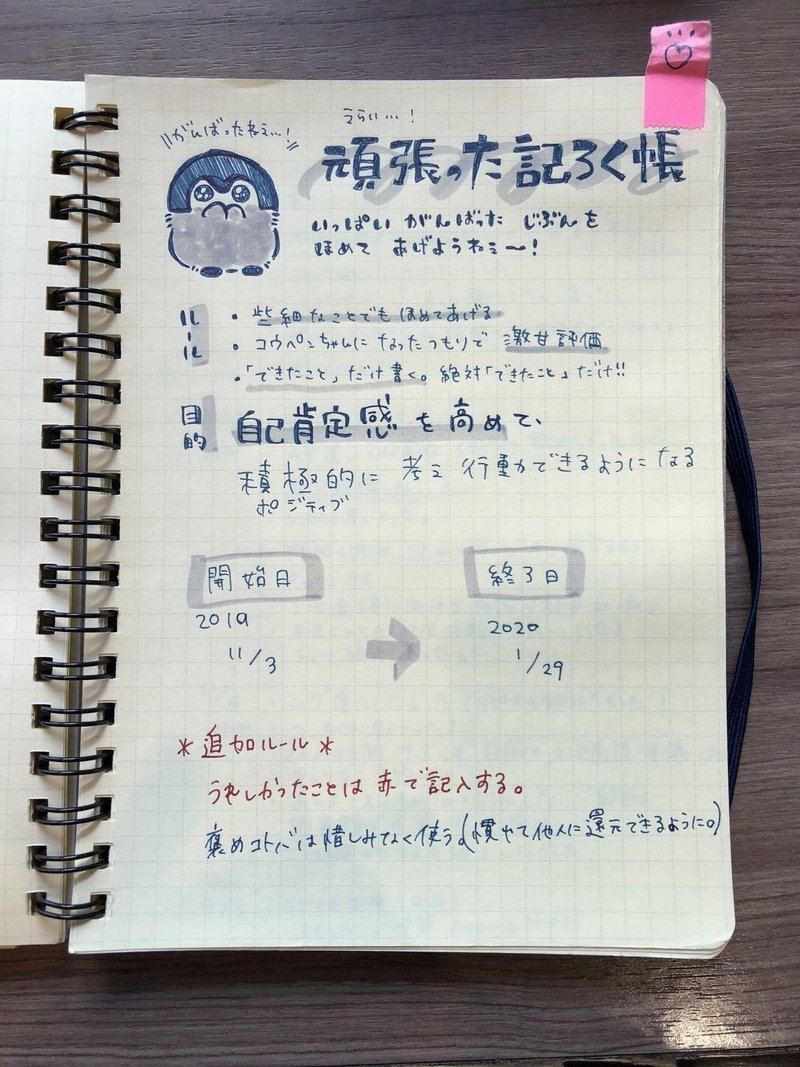 がんばったねェ…!
えらい…!
頑張った記ろく帳
いっぱい がんばった じぶんを
ほめて あげようねェ〜!
ルール
・些細なことでも ほめてあげる
・コウペンちゃんに なったつもりで 激甘評価
・「できたこと」だけ書く。絶対「できたこと」だけ!!
目的
自己肯定感を高めて、
積極的に 考え 行動ができるようになる
ポジティブ
開始日
2019
11/3
終了日
2020
1/29
*追加ルール*
うれしかったことは 赤で記入する。
褒めコトバは惜しみなく使う。(慣れて他人に還元できるように。)